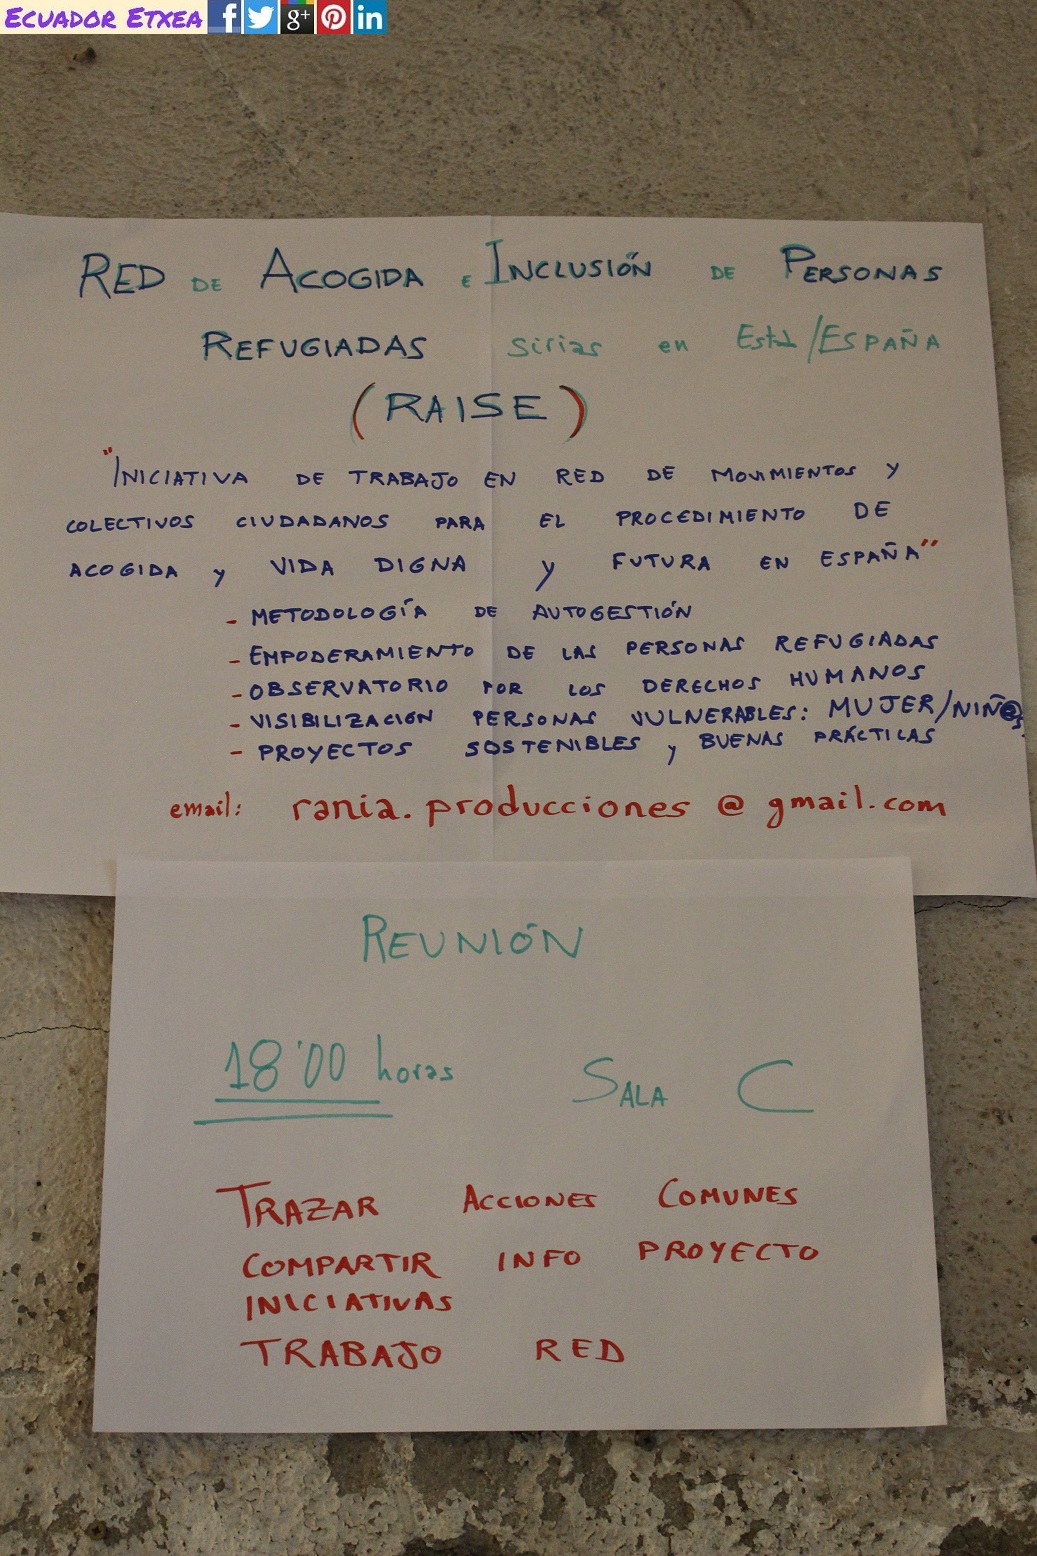 ECUADOR ETXEA
RED DE ACOGIDA E INCLUSIÓN DE PERSONAS
REFUGIADAS sirias en /ESPAÑA
(RAISE)
"INICIATIVA DE TRABAJO EN RED DE MOVIMIENTOS Y
COLECTIVOS CIUDADANOS PARA EL PROCEDIMIENTO DE
ACOGIDA y VIDA DIGNA y FUTURA EN ESPAÑA"
- METODOLOGÍA DE AUTOGESTIÓN
- EMPODERAMIENTO DE LAS PERSONAS REFUGIADAS
- OBSERVATORIO POR LOS DERECHOS HUMANOS
- VISIBILIZACIÓN PERSONAS VULNERABLES: MUJER/NIÑ@S
- PROYECTOS SOSTENIBLES y BUENAS PRÁCTICAS
email: rania.producciones@gmail.com
REUNIÓN
18'00 horas SALA C
TRAZAR ACCIONES COMUNES
COMPARTIR INFO PROYECTO
INICIATIVAS
TRABAJO RED